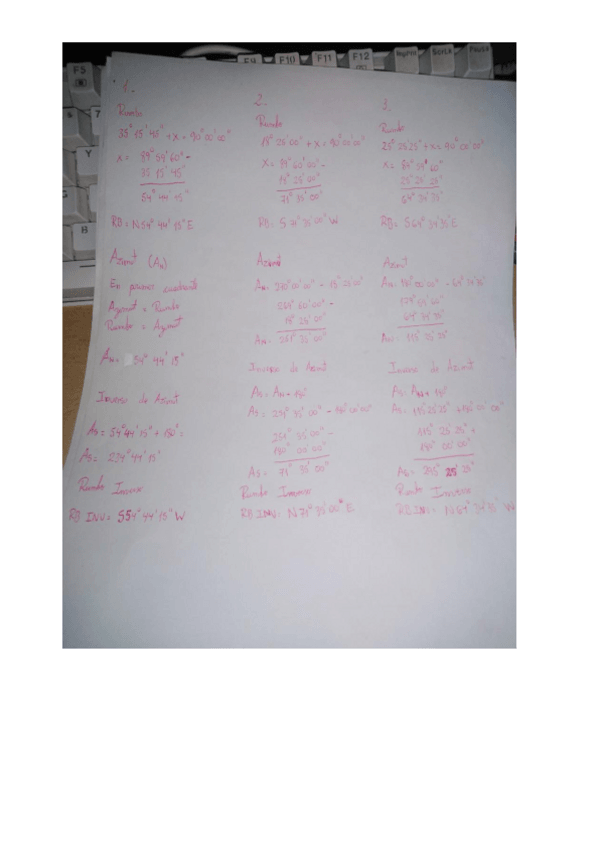 F5
F9
F10
F11
F12
ScrLk
Pause
7
Y
1.
Rumbo
35° 15' 45" + X = 90° 00' 00"
X = 89° 59' 60" -
35 15' 45"
54° 44' 15"
RB = N 54° 44' 15" E
Azimut (An)
En primer cuadrante
Azimut = Rumbo
Rumbo = Azimut
An = 54° 44' 15"
Inverso de Azimut
As = 54° 44' 15" + 180° =
As = 234° 44' 15"
Rumbo Inverso
RB INV = S54° 44' 15" W
2.
Rumbo
+ X = 90° 00' 00"
RB = S 71° 35' 00" W
Azimut
An = 270° 00' 00" -
An = 251° 35' 00"
Inverso de Azimut
As = An - 180°
As = 251° 35' 00" - 180° 00' 00"
251° 35' 00" -
180° 00' 00"
As = 71° 35' 00"
Rumbo Inverso
RB INV = N 71° 35' 00" E
3.
Rumbo
25° 25' 25" + X = 90° 00' 00"
X = 89° 59' 60"
25° 25' 25"
64° 34' 35"
RB = S 64° 34' 35" E
Azimut
64° 34' 35"
An = 115° 25' 25"
Inverso de Azimut
As = An + 180°
115° 25' 25" +
180° 00' 00"
As = 295° 25' 25"
Rumbo Inverso
RB INV = N 64° W